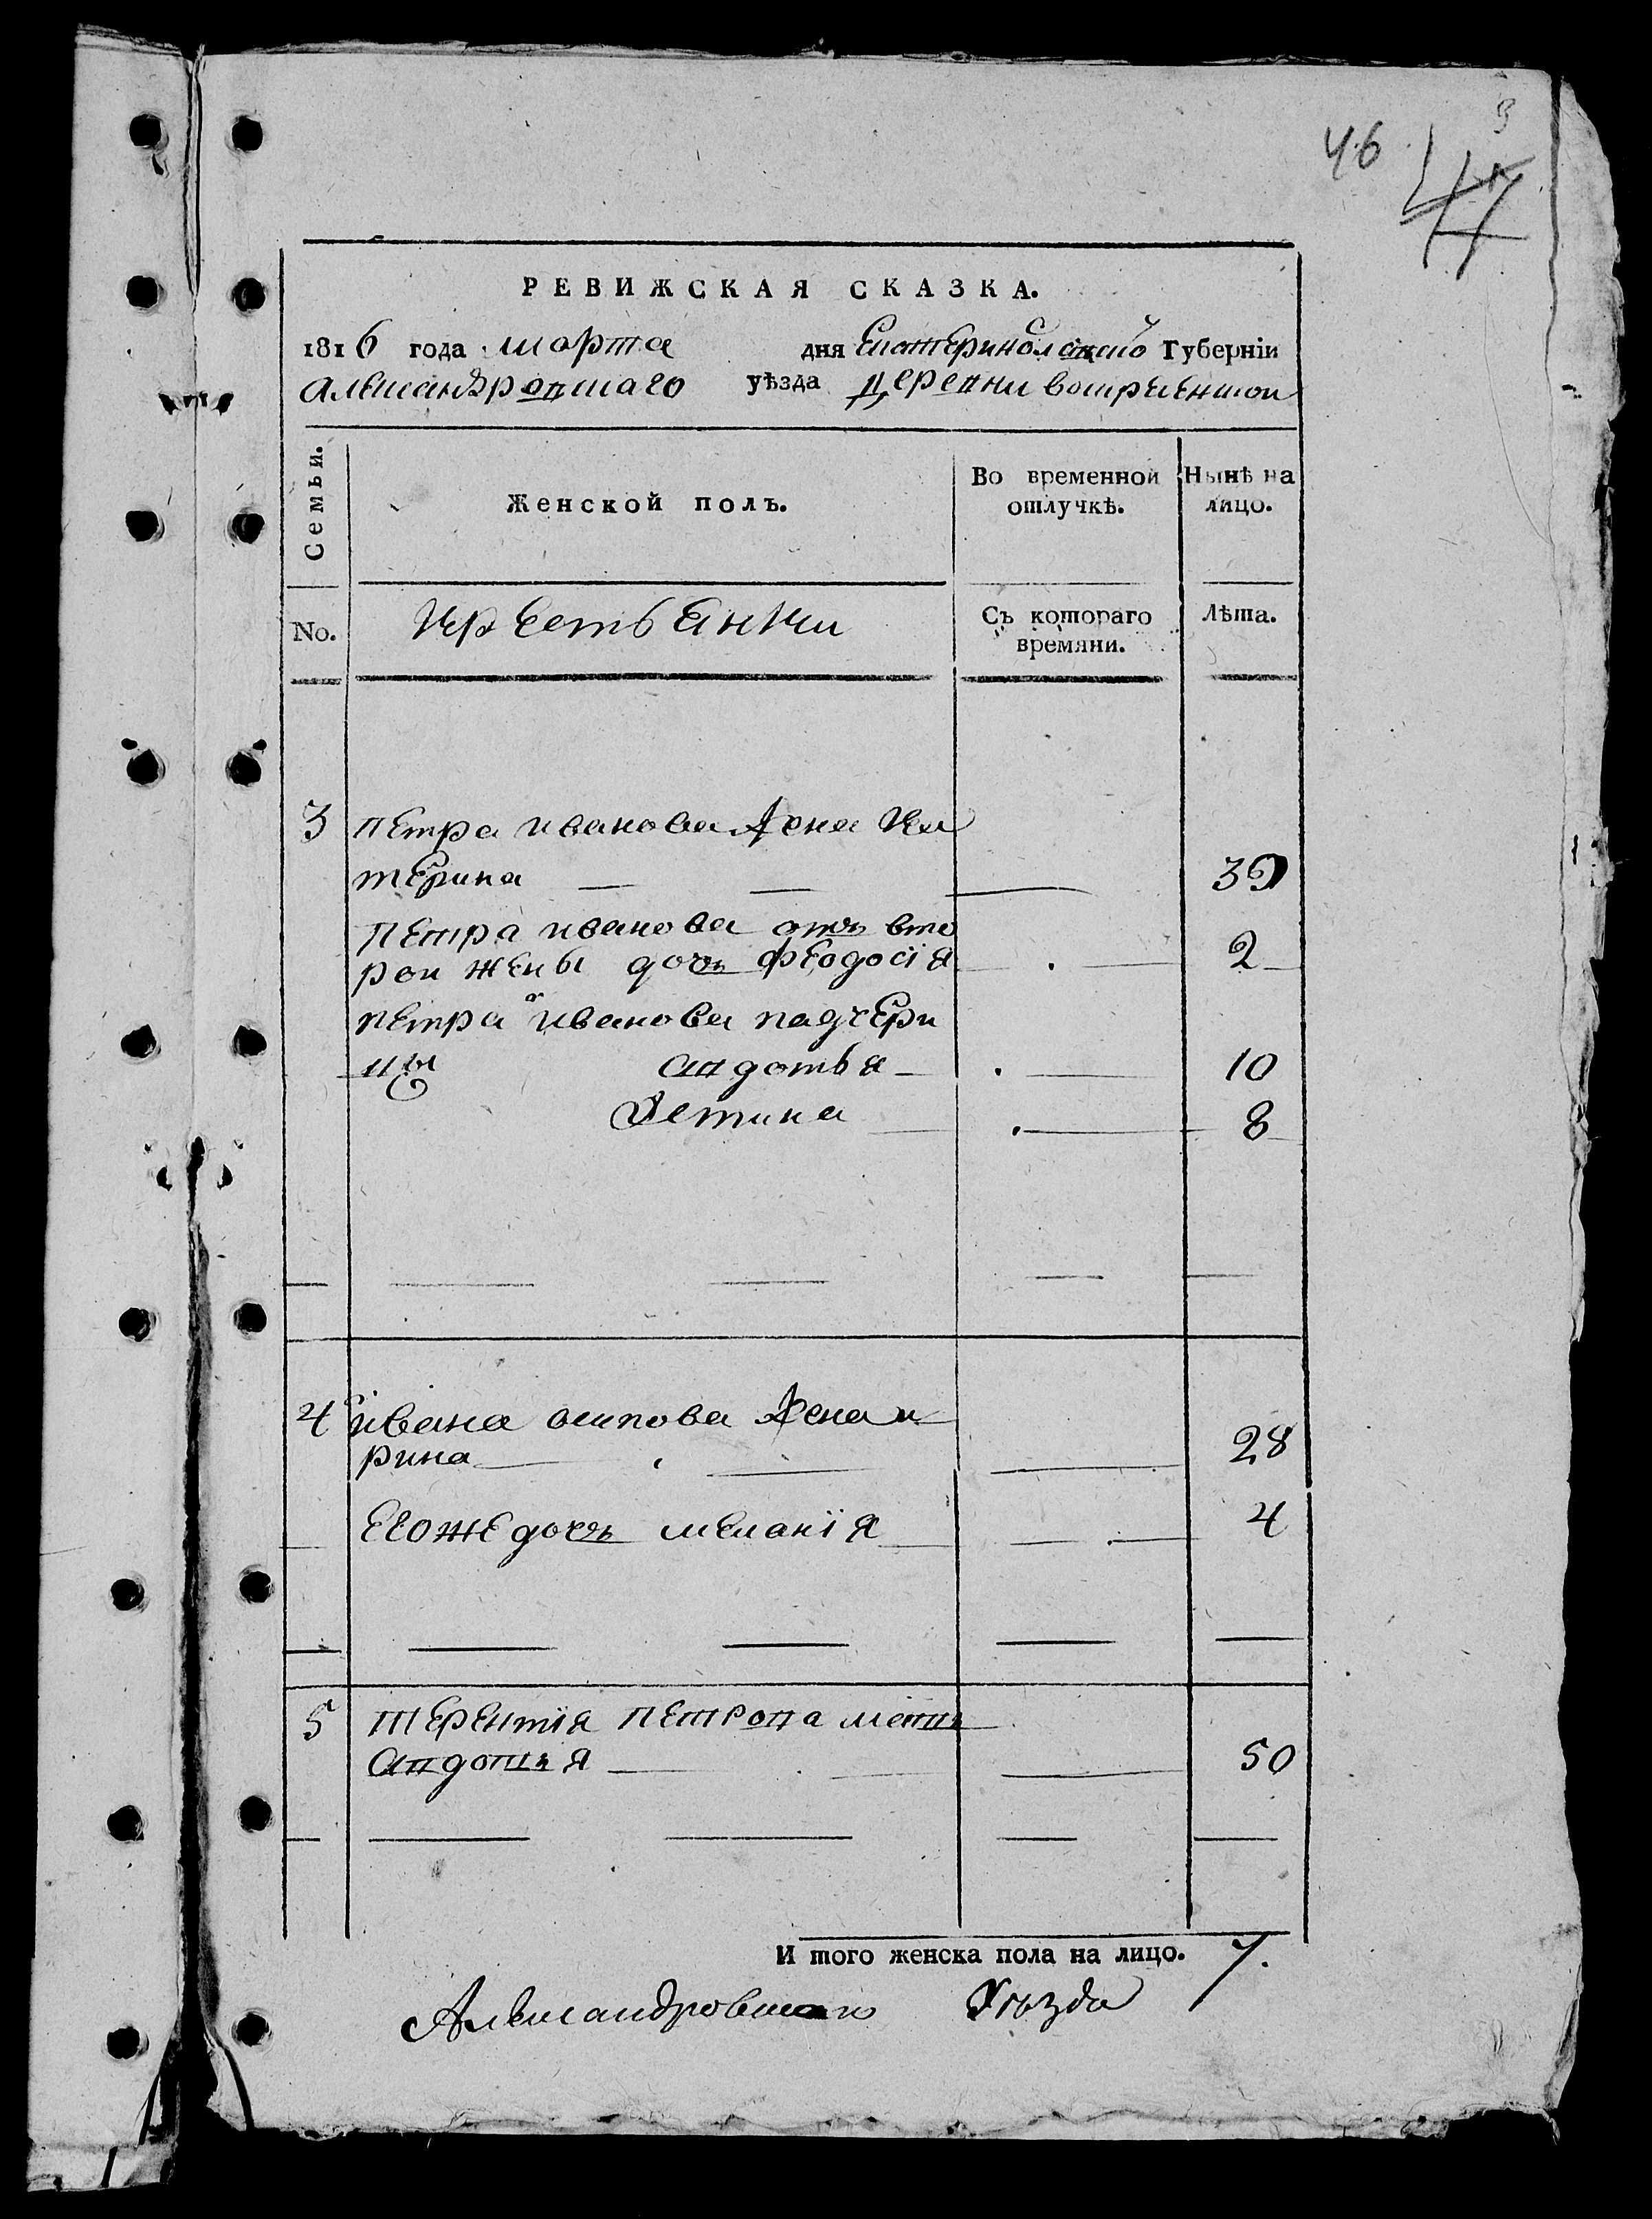 46
РЕВИЖСКАЯ СКАЗКА.
1816 года марта дня Екатеринославской Губернїи
Александровскаго уѣзда Деревни
Семьи.
Женской полъ.
Во временной отлучкѣ.
Нынѣ на лицо.
No.
крестьЕнки
Съ котораго времяни.
Лѣта.
3 Петра иванова жена Ка
терина — — — 39
Петра иванова отъ вто
рои жены дочь феодосїя — 2
петра иванова падчери
цы авдотья — 10
Устина — 8
4 ивана осипова жена и
рина — — — 28
Егоже дочь меланїя — 4
5 терентїя петрова мать
авдотья — — 50
И того женска пола на лицо. 7.
Александровскаго Уѣзда